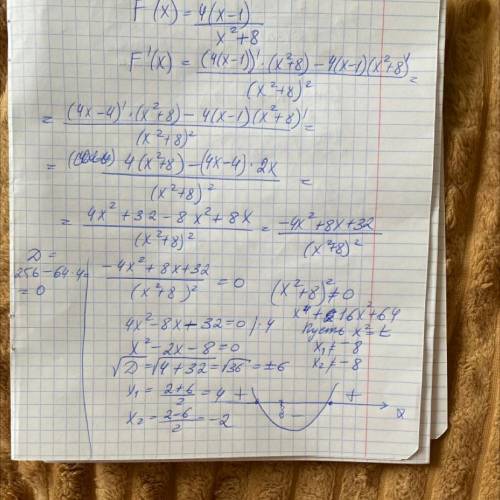 F(x) = 4(x-1) / x²+8
F'(x) = (4(x-1))' · (x²+8) - 4(x-1)(x²+8)' / (x²+8)² =
= (4x-4)' · (x²+8) - 4(x-1)(x²+8)' / (x²+8)² =
= 4(x²+8) - (4x-4) · 2x / (x²+8)² =
= 4x² + 32 - 8x² + 8x / (x²+8)² = -4x² + 8x + 32 / (x²+8)²
D =
256 - 64 · 4
= 0
-4x² + 8x + 32 / (x²+8)² = 0
(x²+8)² ≠ 0
x⁴ + 16x² + 64
Пусть x² = t
x₁ ≠ -8
x₂ ≠ -8
4x² - 8x - 32 = 0 | · 4
x² - 2x - 8 = 0
√D = √4 + 32 = √36 = ±6
x₁ = 2+6 / 2 = 4
x₂ = 2-6 / 2 = -2
+ - +